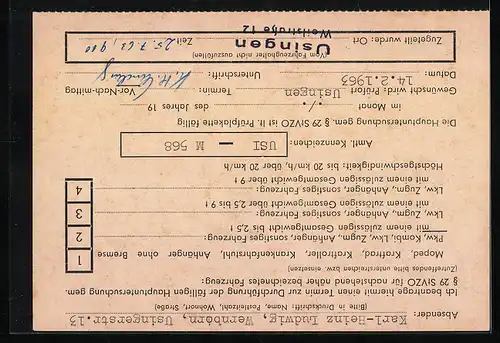 Absender: Karl-Heinz Ludwig, Wernborn, Usingerstr.13
(Bitte in Druckschrift: Name, Postleitzahl, Wohnort, Straße)
Ich beantrage hiermit einen Termin zur Durchführung der fälligen Hauptuntersuchung gem.
§ 29 StVZO für mein nachstehend näher bezeichnetes Fahrzeug:
(Zutreffendes bitte unterstreichen bzw. einsetzen)
Moped, Kraftrad, Kraftroller, Krankenfahrstuhl, Anhänger ohne Bremse 1
Pkw, Kombi, Lkw, Zugm, Anhänger, sonstiges Fahrzeug:
mit einem zulässigen Gesamtgewicht bis 2,5 t 2
Lkw, Zugm, Anhänger, sonstiges Fahrzeug:
mit einem zulässigen Gesamtgewicht über 2,5 bis 9 t 3
Lkw, Zugm, Anhänger, sonstiges Fahrzeug:
mit einem zulässigen Gesamtgewicht über 9 t 4
Höchstgeschwindigkeit: bis 20 km/h, über 20 km/h
Amtl. Kennzeichen: USI — M 568
Die Hauptuntersuchung gem. § 29 StVZO ist lt. Prüfplakette fällig
im Monat ./. des Jahres 19
Gewünscht wird: Prüfort Usingen Termin: Vor-Nach-mittag
Datum: 14.2.1963 Unterschrift:
(Vom Fahrzeughalter nicht auszufüllen)
Zugeteilt wurde: Ort: Usingen Zeit 25.7.63, 9 00
Weilstraße 12